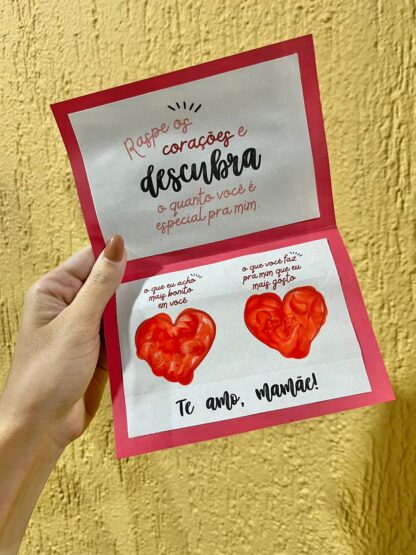 Raspe os
corações e
descubra
o quanto você é
especial pra mim.
o que eu acho
mais bonito
em você
o que você faz
pra mim que eu
mais gosto
Te amo, mamãe!